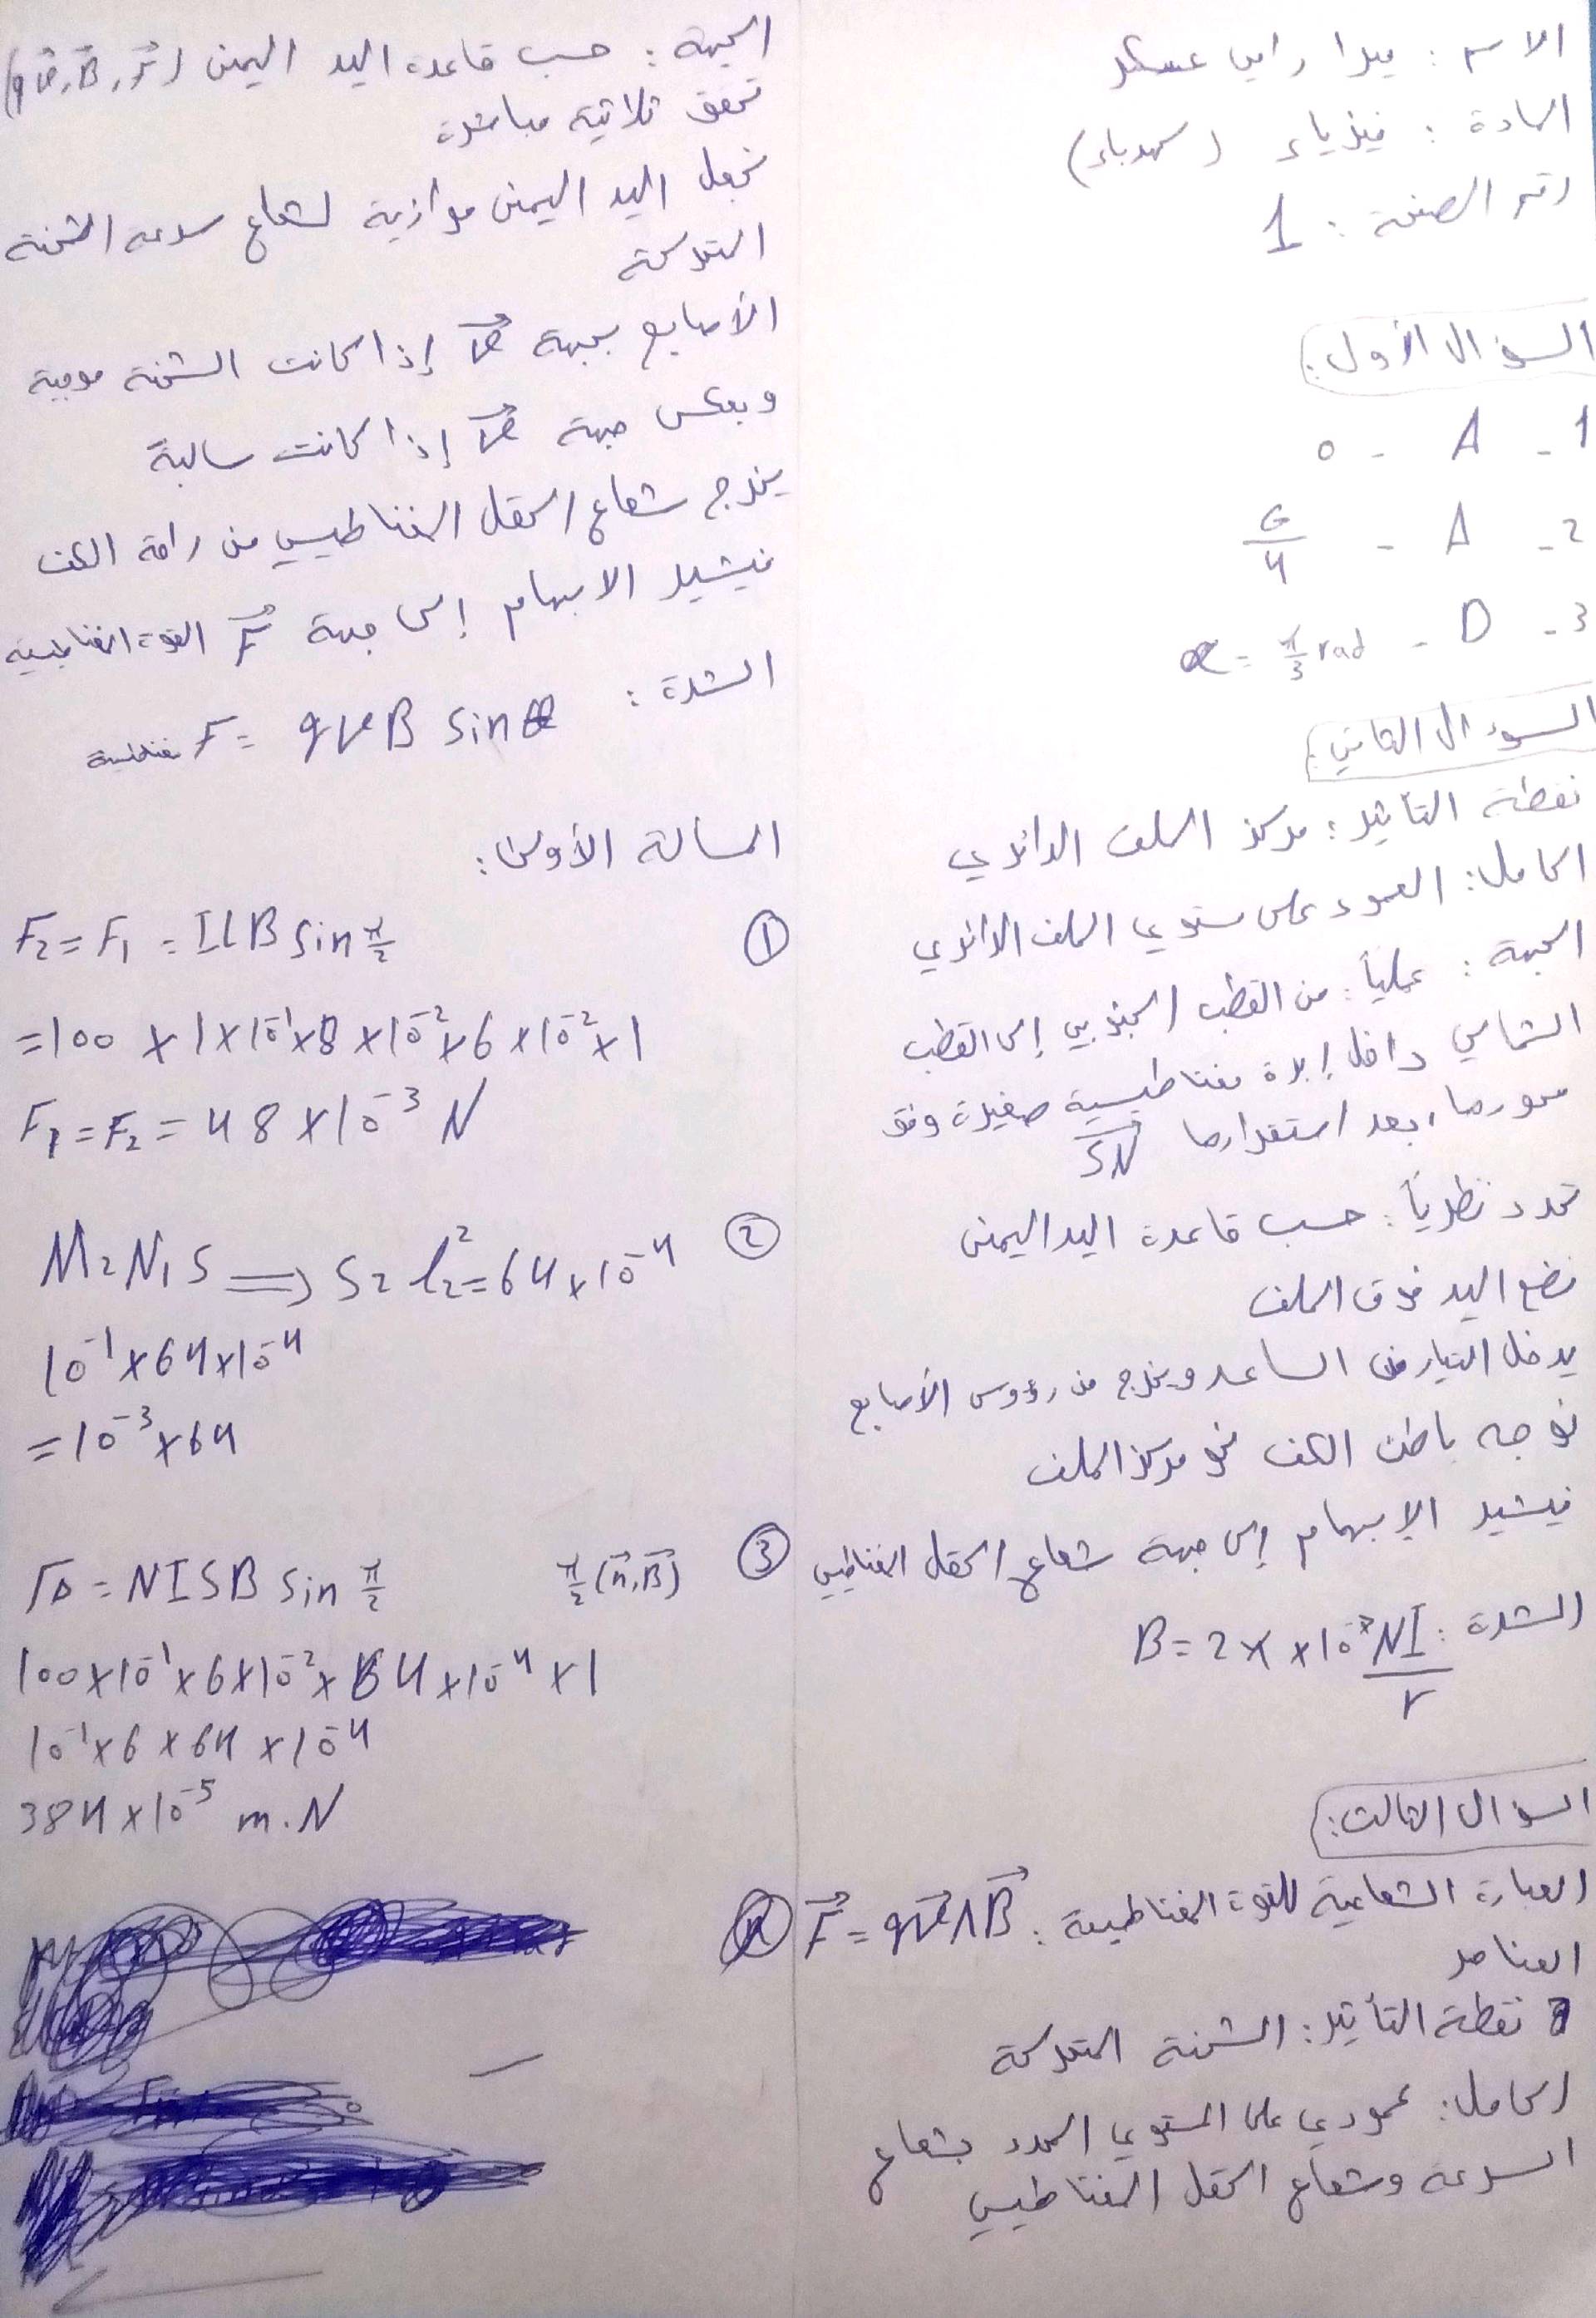 الاسم : ميرا رامي عسكر
المادة : فيزياء (كهرباء)
رقم الصفحة : 1
السؤال الأول :
1 - A - 0
2 - A - G/4
3 - D - α = π/3 rad
السؤال الثاني :
نقطة التأثير : مركز الملف الدائري
الحامل : العمود على مستوي الملف الدائري
الجهة : عملياً : من القطب الجنوبي إلى القطب
الشمالي داخل إبرة مغناطيسية صغيرة وفق
محورها بعد استقرارها SN
تحدد نظرياً : حسب قاعدة اليد اليمنى
نضع اليد فوق الملف
يدخل التيار من الساعد ويخرج من رؤوس الأصابع
نوجه باطن الكف نحو مركز الملف
فيشير الإبهام إلى جهة شعاع الحقل المغناطيسي
الشدة : B = 2π × 10⁻⁷ NI/r
السؤال الثالث :
العبارة الشعاعية للقوة المغناطيسية : F = qv∧B
العناصر
نقطة التأثير : الشحنة المتحركة
الحامل : عمودي على المستوي المحدد بشعاع
السرعة وشعاع الحقل المغناطيسي
الجهة : حسب قاعدة اليد اليمنى (qv, B, F)
تحقق ثلاثية مباشرة
نجعل اليد اليمنى موازية لشعاع سرعة الشحنة
المتحركة
الأصابع بجهة v إذا كانت الشحنة موجبة
وبعكس جهة v إذا كانت سالبة
يخرج شعاع الحقل المغناطيسي من راحة الكف
فيشير الابهام إلى جهة F القوة المغناطيسية
الشدة : F مغناطيسية = qvB sinθ
المسألة الأولى :
① F₂ = F₁ = ILB sin π/2
= 100 × 1 × 10⁻¹ × 8 × 10⁻² × 6 × 10⁻² × 1
F₁ = F₂ = 48 × 10⁻³ N
② M = N I S ⟹ S = l² = 64 × 10⁻⁴
10⁻¹ × 64 × 10⁻⁴
= 10⁻³ × 64
③ ΓΔ = NISB sin π/2 π/2 (n, B)
100 × 10⁻¹ × 6 × 10⁻² × 64 × 10⁻⁴ × 1
10⁻¹ × 6 × 64 × 10⁻⁴
384 × 10⁻⁵ m.N